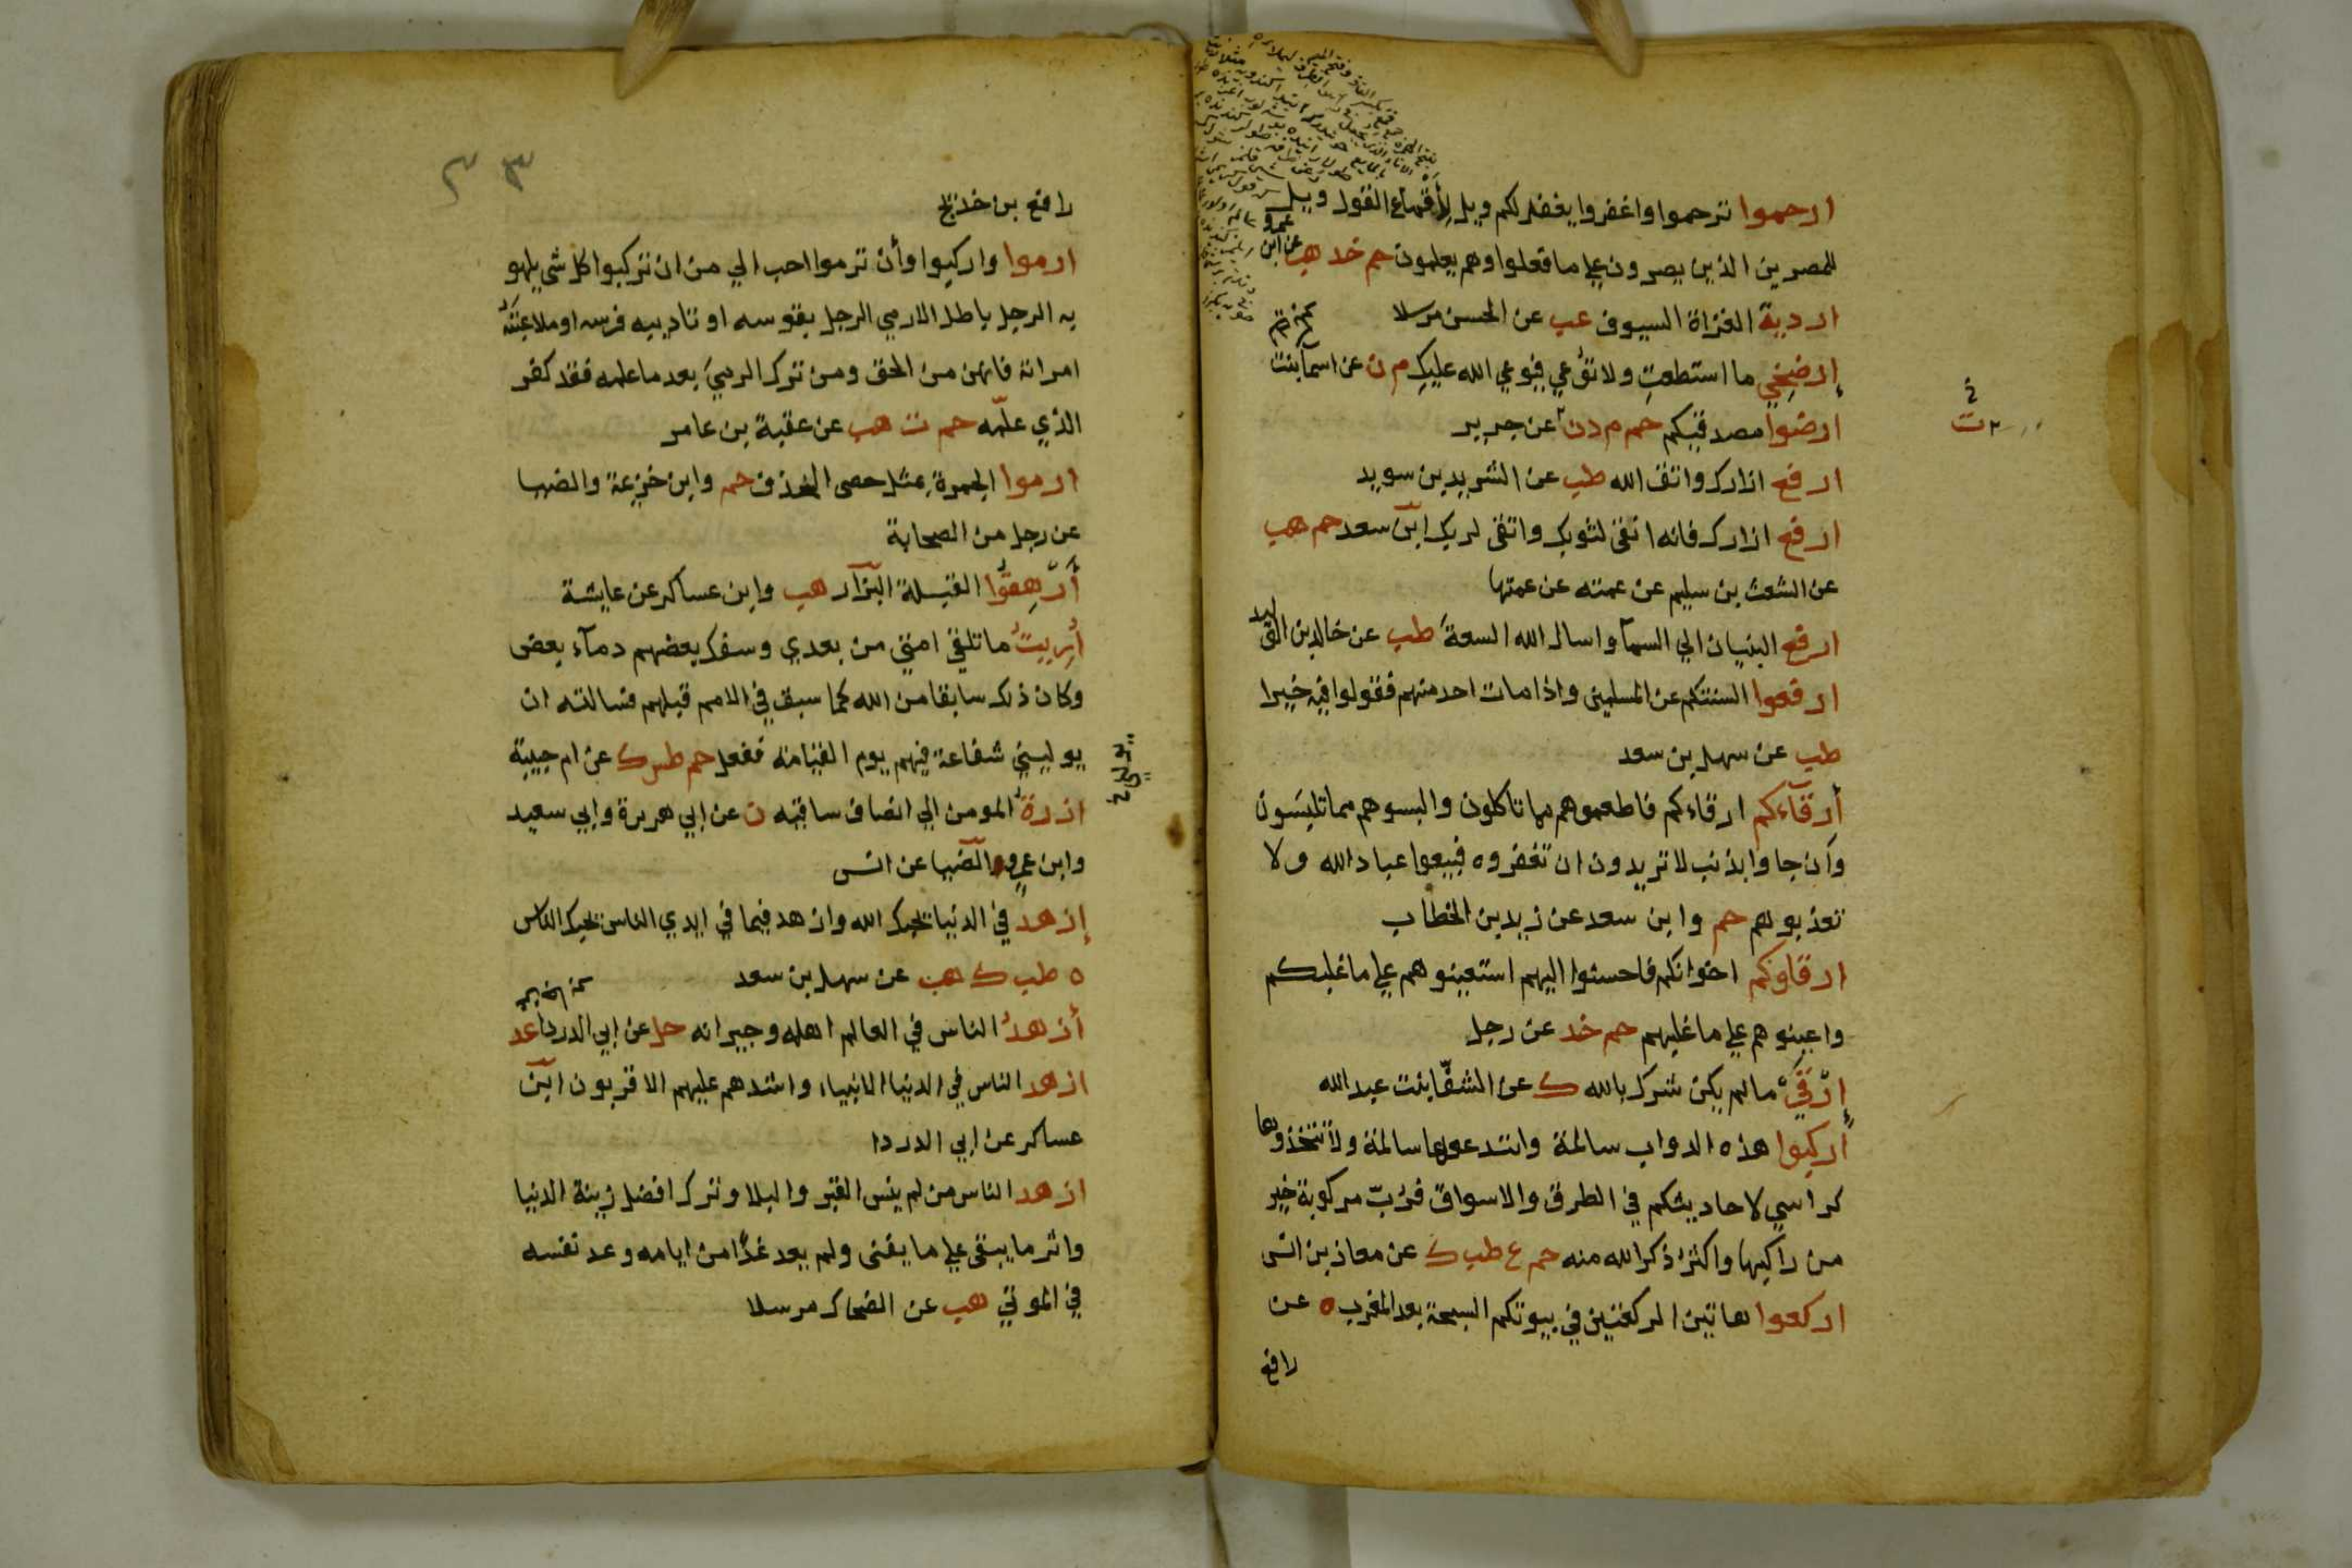 ارحموا ترحموا واغفروا يغفر لكم ويل لأقماع القول ويل
للمصرين الذين يصرون علي ما فعلوا وهم يعلمون حم خد هب عن ابن عمرو
اردية الغزاة السيوف عب عن الحسن مرسلا
إرضخي ما استطعتِ ولا توعي فيوعي الله عليكِ م ن عن اسمآ بنت
ارضوا مصدقيكم حم م د ن عن جرير
ارفع ازارك واتق الله طب عن الشريد بن سويد
ارفع ازارك فانه انقى لثوبك واتقى لربك ابن سعد حم هب
عن الشعث بن سليم عن عمته عن عمها
ارفع البنيان الي السمآ واسال الله السعة طب عن خالد بن الوليد
ارفعوا السنتكم عن المسلمين واذا مات احد منهم فقولوا فيه خيرا
طب عن سهل بن سعد
أرقآءكم ارقاءكم فاطعموهم مما تاكلون والبسوهم مما تلبسون
وان جاوا بذنب لا تريدون ان تغفروه فبيعوا عباد الله ولا
تعذبوهم حم وابن سعد عن زيد بن الخطاب
ارقاوكم اخوانكم فاحسنوا اليهم استعينوهم علي ما غلبكم
واعينوهم علي ما غلبهم حم خد عن رجل
إرقي ما لم يكن شرك بالله ك عن الشفّا بنت عبد الله
أركبوا هذه الدواب سالمة وانتدعوها سالمة ولا تتخذوها
كراسي لاحاديثكم في الطرق والاسواق فرُبّ مركوبة خير
من راكبها واكثر ذكرا لله منه حم ع طب ك عن معاذ بن انس
اركعوا هاتين الركعتين في بيوتكم السبحة بعد المغرب ه عن
رافع
رافع بن خديج
ارموا واركبوا وأن ترموا احب الي من ان تركبوا كل شي يلهو
به الرجل باطل الا رمي الرجل بقوسه او تاديبه فرسه او ملاعبته
امراته فانهن من الحق ومن ترك الرمي بعد ما علمه فقد كفر
الذي علّمه حم ت هب عن عقبة بن عامر
ارموا الجمرة بمثل حصى الخذف حم وابن خزيمة والضيا
عن رجل من الصحابة
أرهِقوا القبلة البزآر هب وابن عساكر عن عايشة
أُرِيتُ ما تلقي امتي من بعدي وسفك بعضهم دمآء بعض
وكان ذلك سابقا من الله كما سبق في الامم قبلهم فسالته ان
يوليني شفاعة فيهم يوم القيامة ففعل حم طس ك عن ام حبيبة
ازرة المومن الي انصاف ساقيه ن عن ابي هريرة وابي سعيد
وابن عمر والضيا عن انس
إزهد في الدنيا يحبك الله وازهد فيما في ايدي الناس يحبك الناس
ه طب ك هب عن سهل بن سعد
أزهدُ الناس في العالم اهله وجيرانه حل عن ابي الدردا عد
ازهد الناس في الدنيا الانبياء واشدهم عليهم الاقربون ابن
عساكر عن ابي الدردا
ازهد الناس من لم ينس القبر والبلا وترك افضل زينة الدنيا
واثر ما يبقى علي ما يفنى ولم يعد غدًا من ايامه وعد نفسه
في الموتي هب عن الضحاك مرسلا